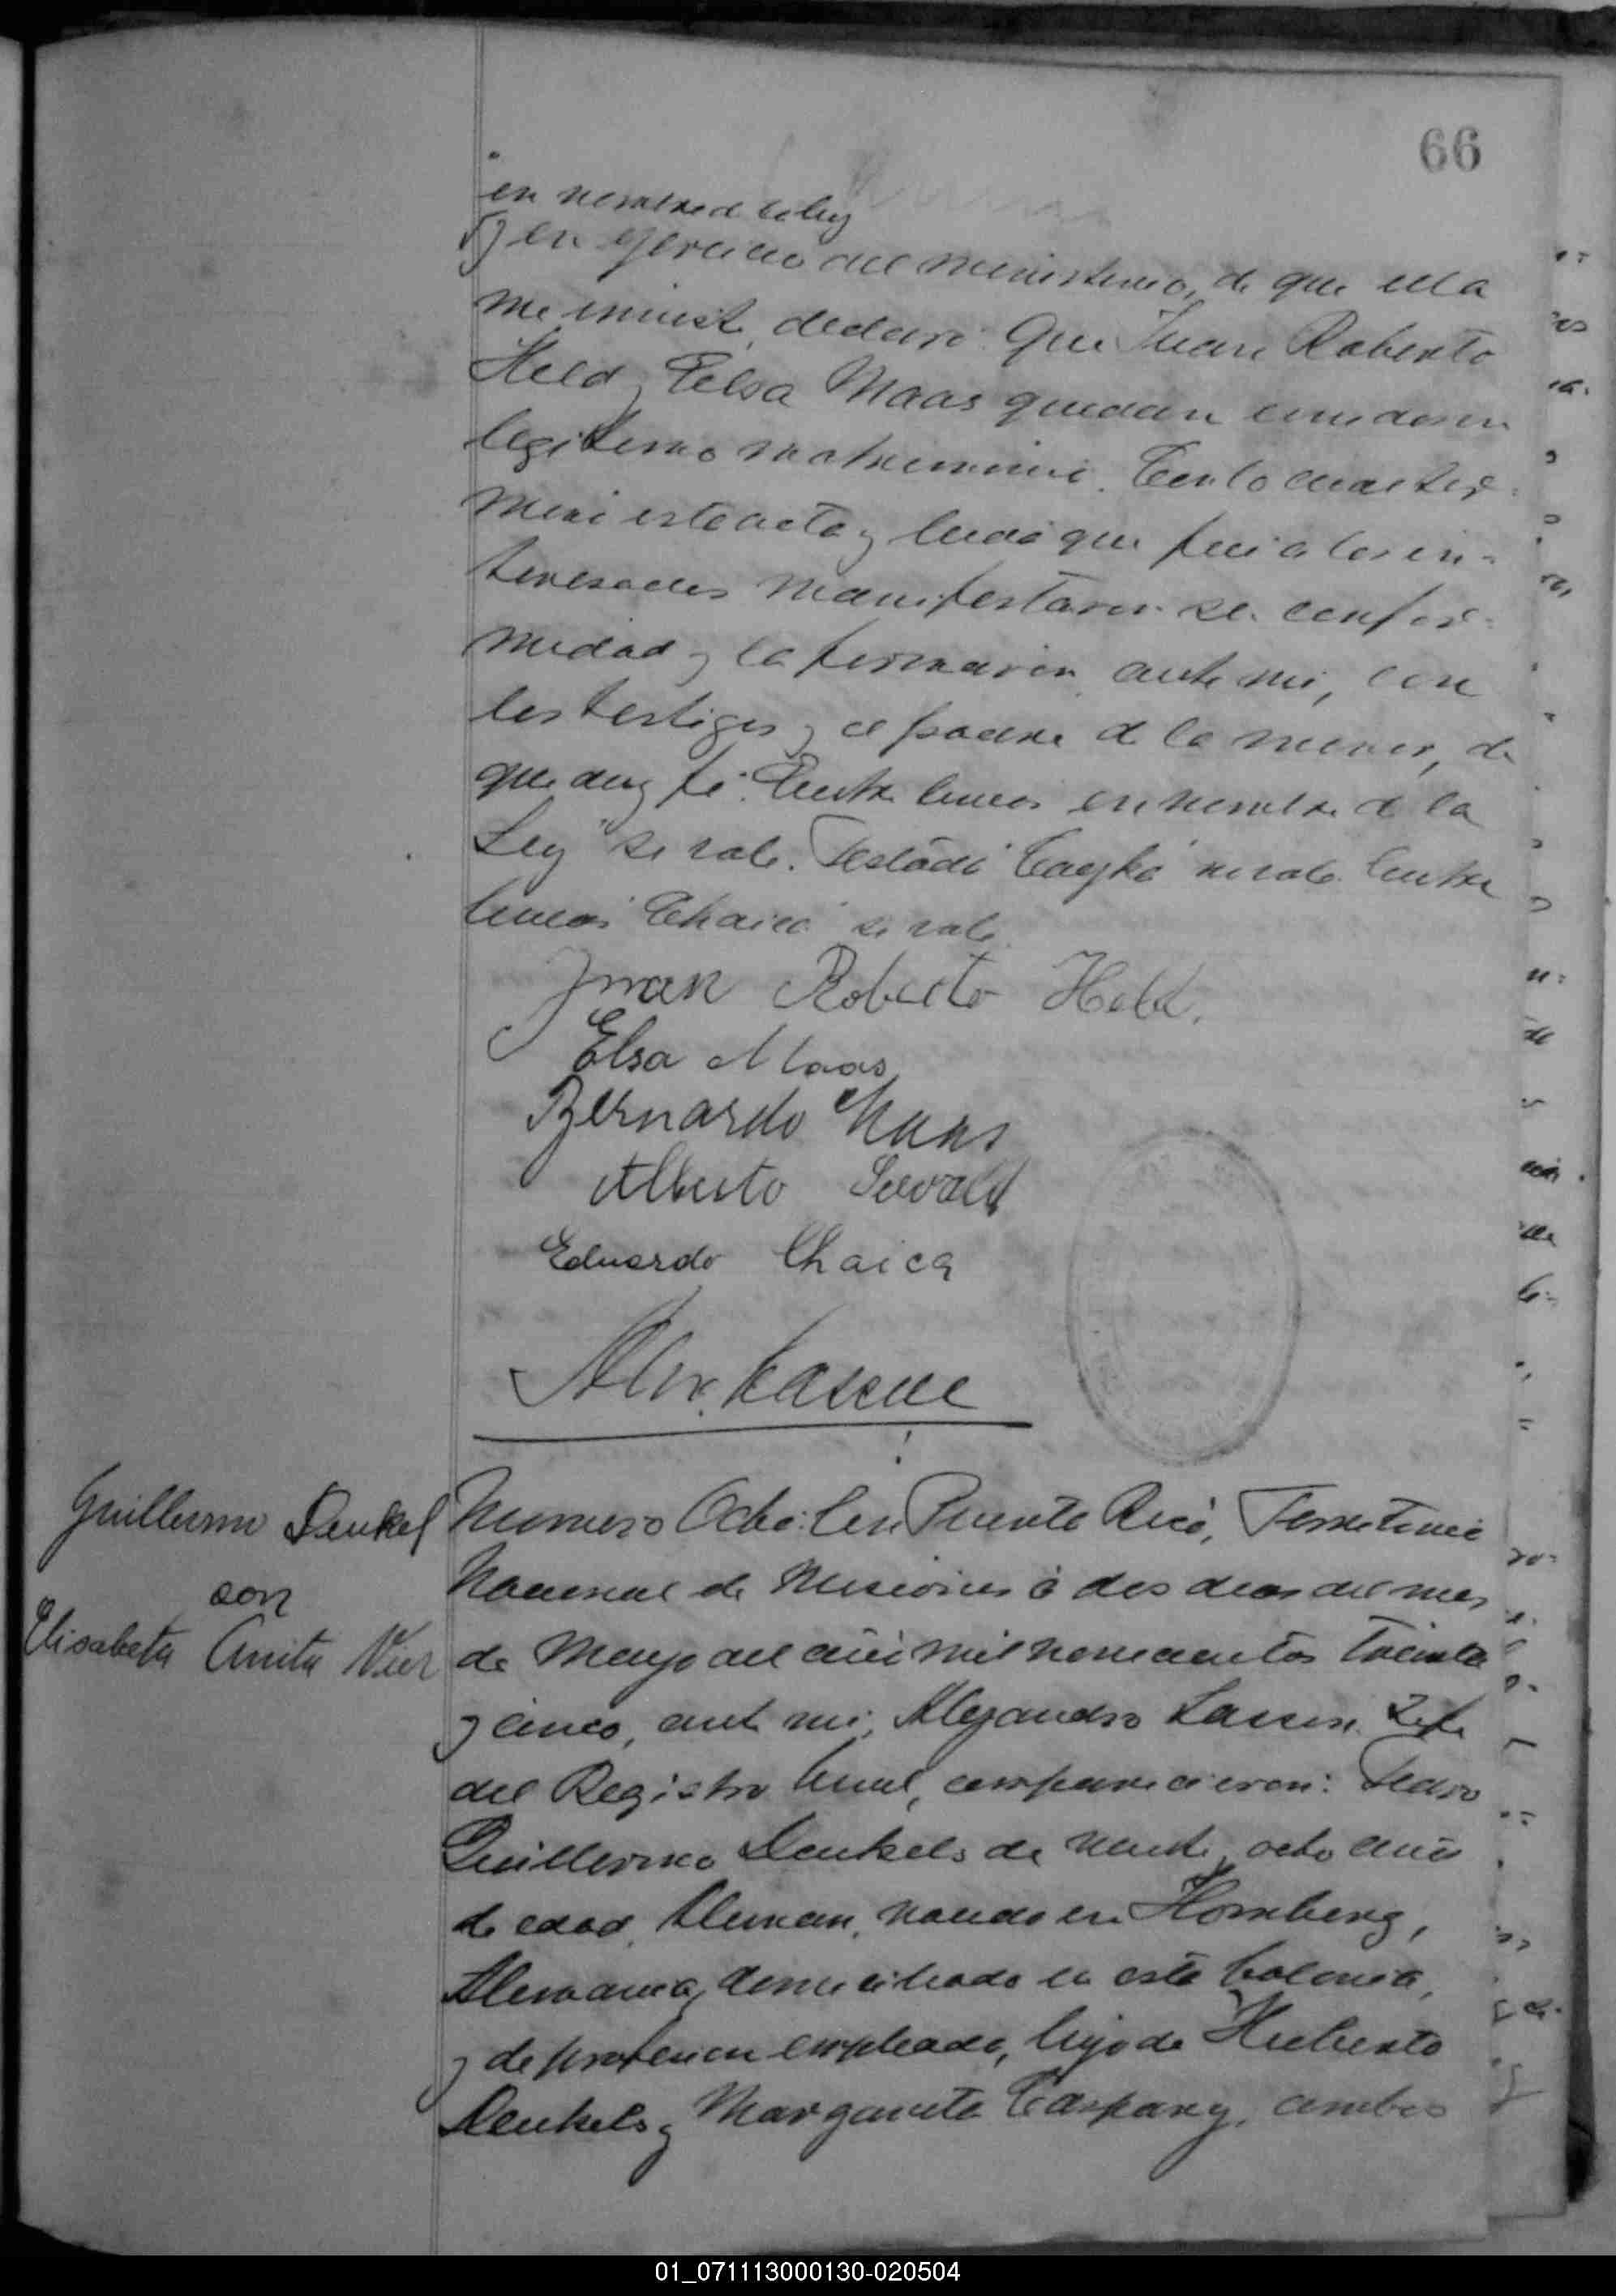 66
en nombre de la ley
y en ejercicio del ministerio, de que ella
me inviste, declaré: Que Juan Roberto
Held y Elsa Maas quedan unidos en
legitimo matrimonio. Con lo cual ter-
miné este acta y leida que fué a los in-
teresados manifestaron su confor-
midad y la firmaron ante mi, con
los testigos y el padre de la menor, de
que doy fé. Entre lineas "en nombre de la
Ley" si vale. Testado no vale. Entre
lineas "Chaica" si vale.
Juan Roberto Held.
Elsa Maas
Bernardo Maas
Alberto
Eduardo Chaica
Guillermo Denkel
con
Elisabeta Anita Vier
Numero Ocho: En Puerto Rico, Territorio
Nacional de Misiones á dos dias del mes
de Mayo del año mil novecientos treinta
y cinco, ante mi, Alejandro Jefe
del Registro Civil, comparecieron: Pedro
Guillermo Denkels de veinte y ocho años
de edad, Aleman, nacido en Homberg,
Alemania, domiciliado en esta Colonia,
y de profesion empleado, hijo de Huberto
Denkels y Margareta Caspary, ambos
01_071113000130-020504